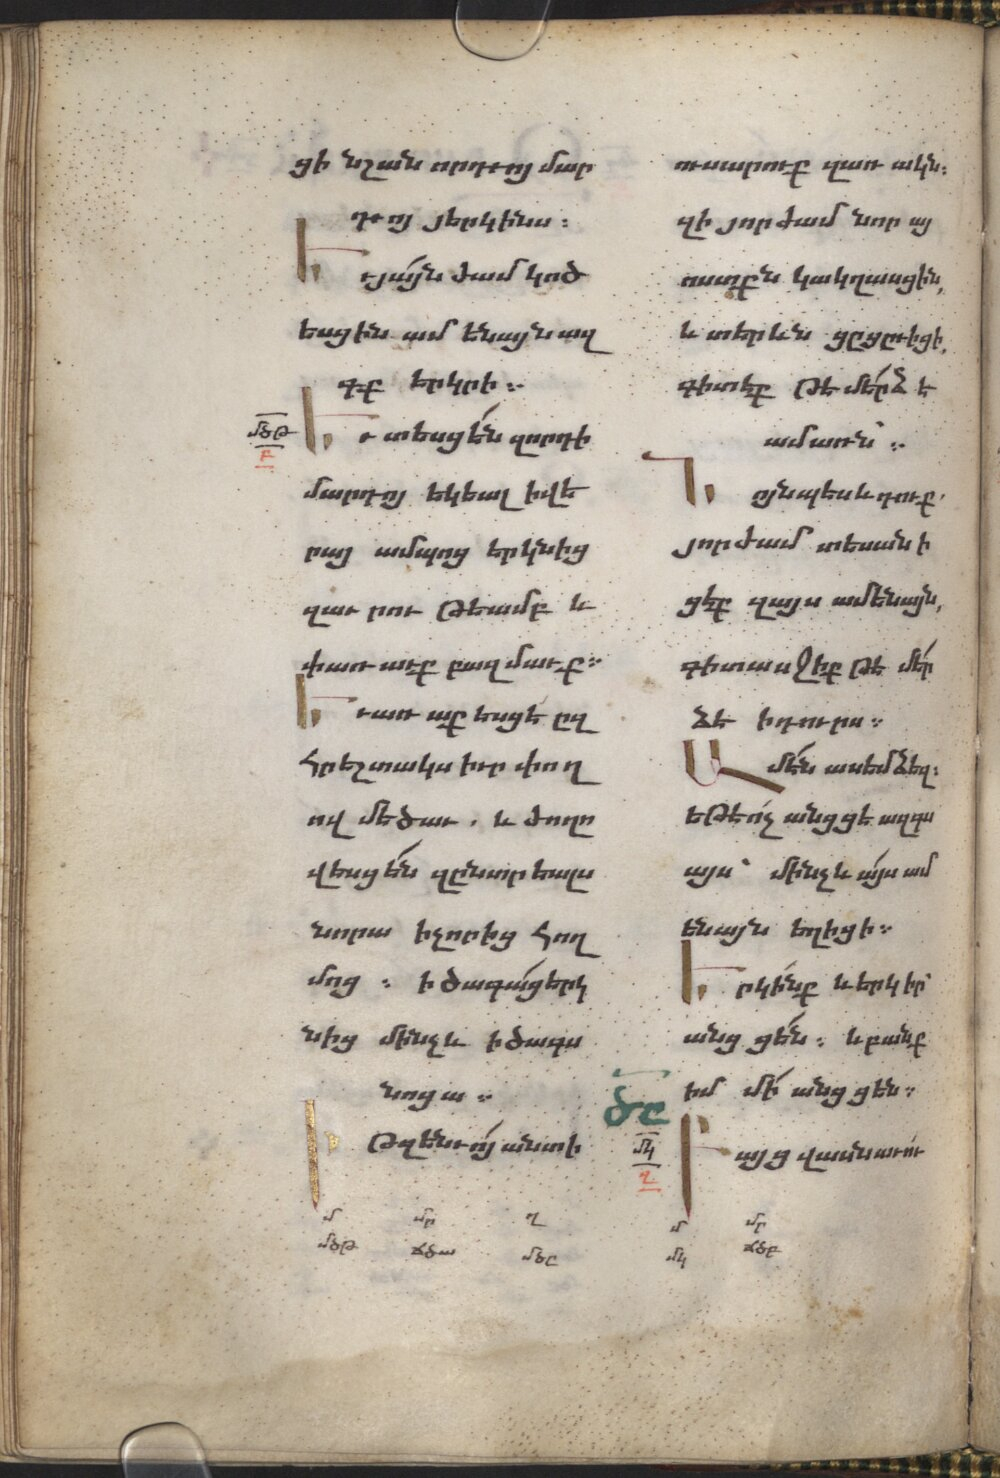 ցի նշան որդւոյ մար
դւոյ յերկինս։
Եւ յայն ժամ կոծ
եսցին ամենայն ազ
գք երկրի։
մծթ
բ
Եւ տեսցեն զորդի
մարդոյ եկեալ ի վե
րայ ամպոց երկնից
զաւրութեամբ և
փառաւք բազմաւք։
Եւ առաքեսցէ ըզ
հրեշտակս իւր փող
ով մեծաւ. և ժողո
վեսցեն զընտրեալս
նորա ի չորից հող
մոց։ ի ծագաց երկ
նից մինչև ի ծագս
նոցա։
Ի թզենւոյ անտի
ուսարուք զառակն։
զի յորժամ նորա
ոստքն կակղասցին,
և տերևն ցըցուիցի,
գիտէք թե մերձ է
ամառն։
Նոյնպես և դուք.
յորժամ տեսանի
ցէք զայս ամենայն,
գիտասջիք թէ մեր
ձ է ի դուրս։
Ամէն ասեմ ձեզ։
եթե ոչ անցցե ազգս
այս՝ մինչև այս ամ
ենայն եղիցի։
Երկինք և երկիր՝
անցցեն։ և բանք
իմ մի անցցեն։
ծը
մկ
զ
Բայց վասն աւու
մ մր ղ
մծթ ճծա մծը
մ մր
մկ ճծբ